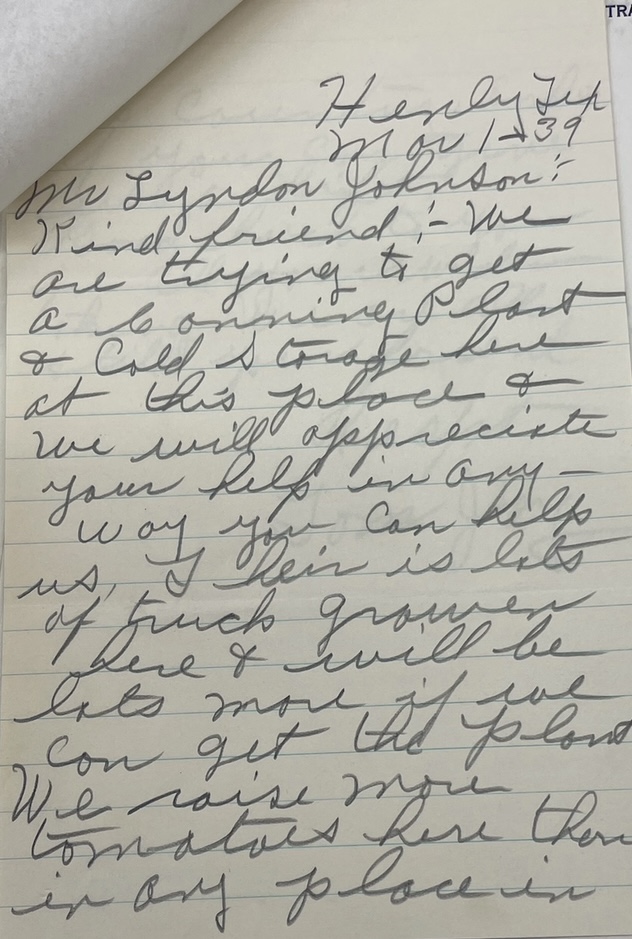 TRA
Henly Tex
Mar 1-39
Mr Lyndon Johnson:-
Kind friend:- We
are trying to get
a Canning Plant
& Cold Storage here
at this place &
we will appreciate
your help in any-
way you can help
us, Their is lots
of truck growen
here & will be
lots more if we
can get the plant
We raise more
tomatoes here than
in any place in